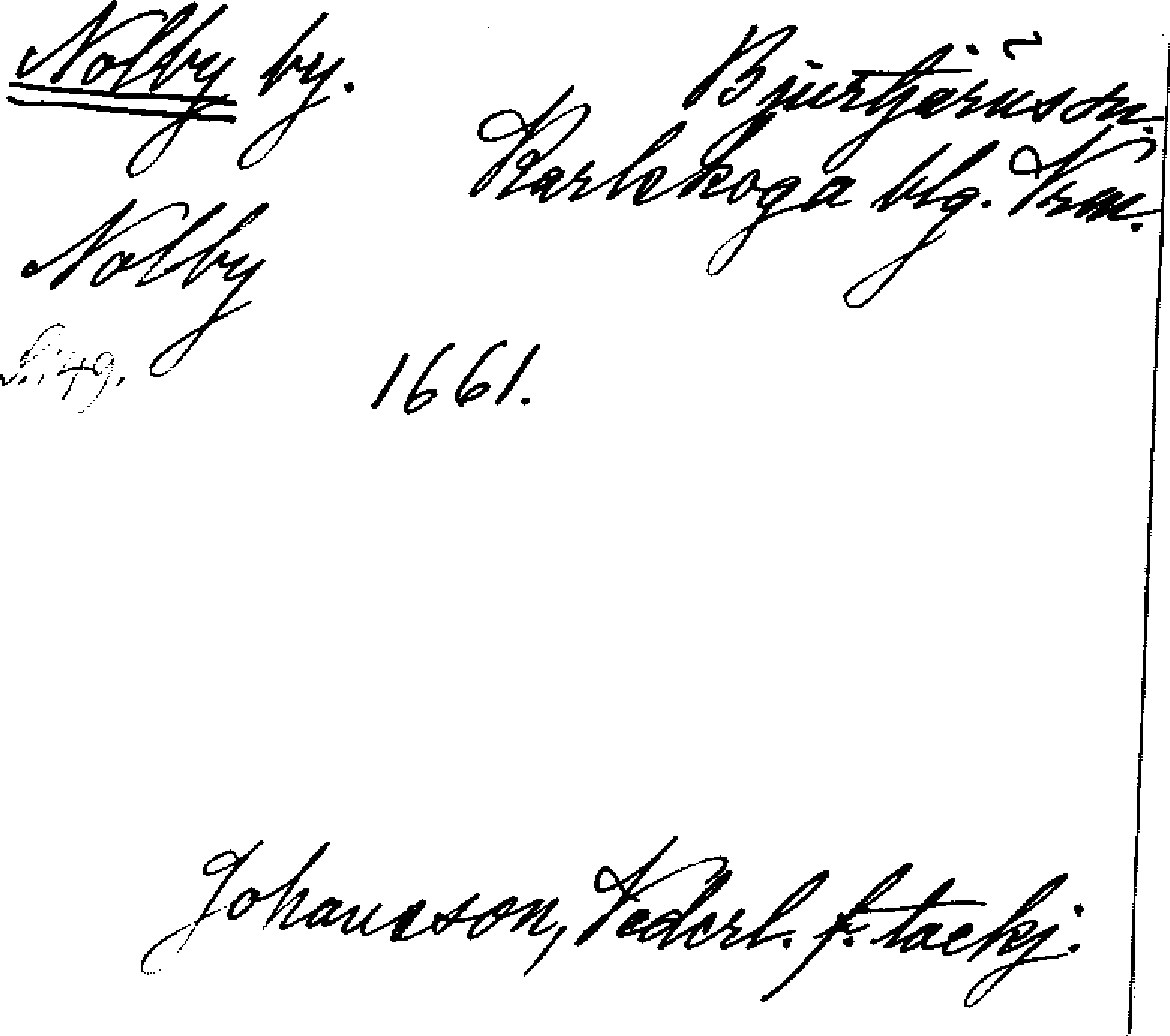 Nolby by.
Bjurtjärns sn.
Karlskoga blg. Vrm.
Nolby
S. 149.
1661.
Johansson, Vederl. f. tackj.